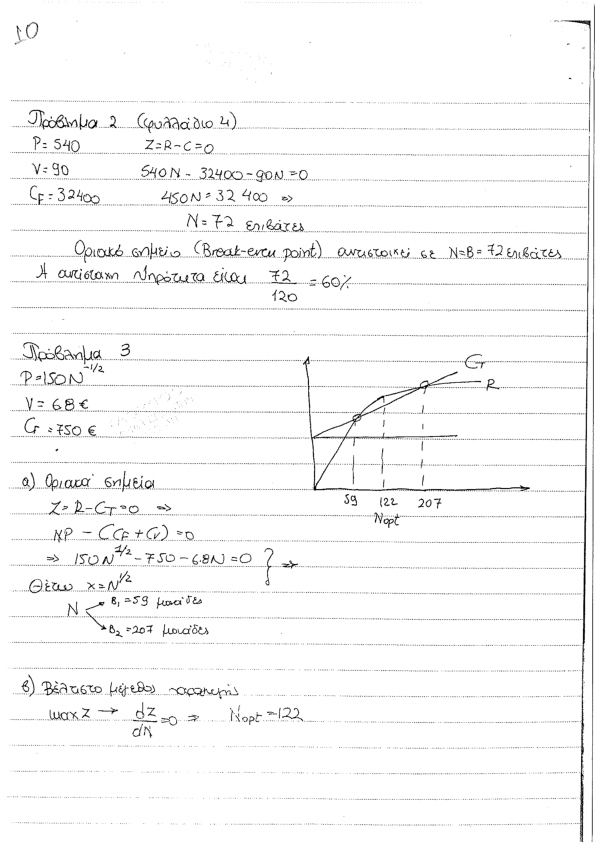 10
Πρόβλημα 2 (φυλλάδιο 4)
P = 540 Z = R - C = 0
V = 90 540N - 32400 - 90N = 0
CF = 32400 450N = 32 400 =>
N = 72 επιβάτες
Οριακό σημείο (Break-even point) αντιστοιχεί σε N=B=72 επιβάτες
Η αντίστοιχη πληρότητα είναι 72/120 = 60%
Πρόβλημα 3
P = 150N^-1/2
V = 6.8 €
CF = 750 €
CT
R
59 122 207
Nopt
α) Οριακά σημεία
Z = R - CT = 0 =>
NP - (CF + CV) = 0
=> 150N^1/2 - 750 - 6.8N = 0 } =>
Θέτω x = N^1/2
N
B1 = 59 μονάδες
B2 = 207 μονάδες
β) Βέλτιστο μέγεθος παραγωγής
max Z → dZ/dN = 0 => Nopt = 122